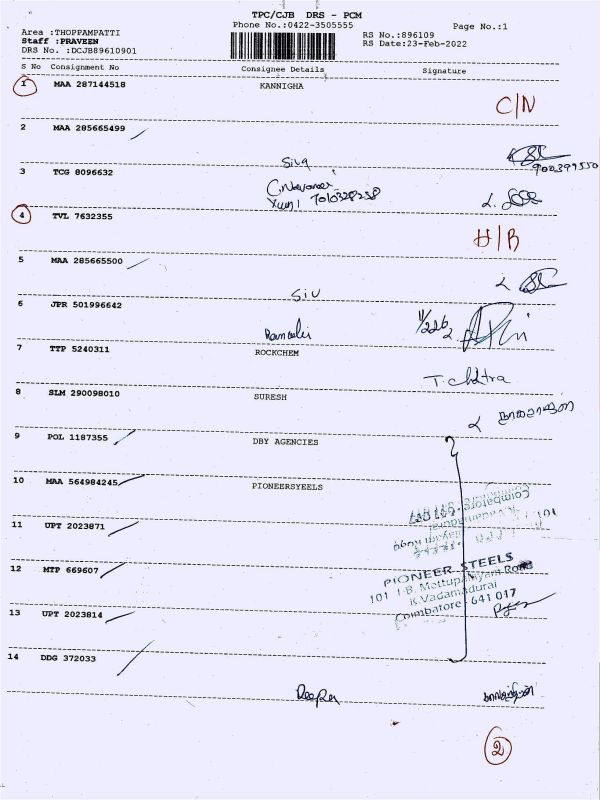 TPC/CJB DRS - PCM
Phone No.:0422-3505555 Page No.:1
Area :THOPPAMPATTI RS No.:896109
Staff :PRAVEEN RS Date:23-Feb-2022
DRS No. :DCJB89610901
S No Consignment No Consignee Details Signature
1 MAA 287144518 KANNIGHA
C/N
2 MAA 285665499
Siva
3 TCG 8096632
7010328258
4 TVL 7632355
H/B
5 MAA 285665500
Siv
6 JPR 501996642
7 TTP 5240311 ROCKCHEM
T. Chitra
8 SLM 290098010 SURESH
9 POL 1187355 DBY AGENCIES
10 MAA 564984245 PIONEERSYEELS
11 UPT 2023871
12 MTP 669607
PIONEER STEELS
101 1-B, Mettupalayam Road
K.Vadamadurai
Coimbatore - 641 017
13 UPT 2023814
14 DDG 372033
Deepa
2